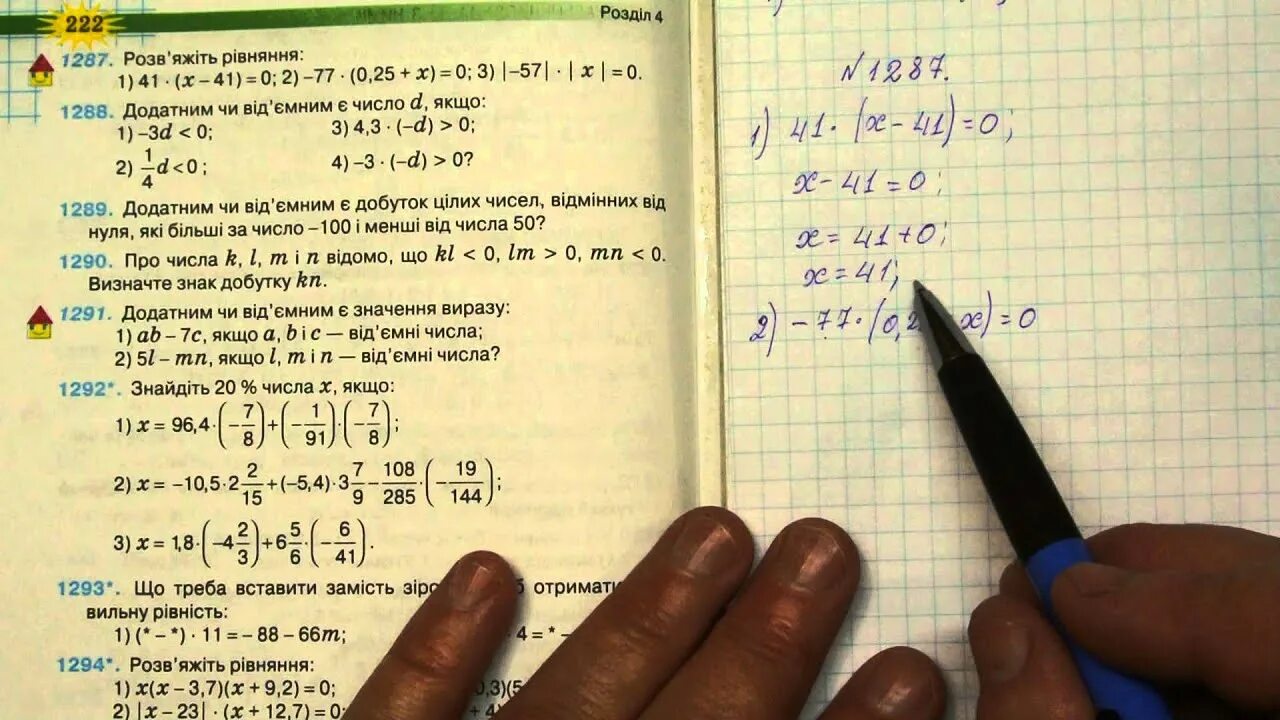 222
Розділ 4
1287. Розв'яжіть рівняння:
1) 41 · (x – 41) = 0; 2) –77 · (0,25 + x) = 0; 3) |–57| · | x | = 0.
1288. Додатним чи від'ємним є число d, якщо:
1) –3d < 0; 3) 4,3 · (–d) > 0;
2) 1/4 d < 0; 4) –3 · (–d) > 0?
1289. Додатним чи від'ємним є добуток цілих чисел, відмінних від
нуля, які більші за число –100 і менші від числа 50?
1290. Про числа k, l, m і n відомо, що kl < 0, lm > 0, mn < 0.
Визначте знак добутку kn.
1291. Додатним чи від'ємним є значення виразу:
1) ab – 7c, якщо a, b і c — від'ємні числа;
2) 5l – mn, якщо l, m і n — від'ємні числа?
1292*. Знайдіть 20 % числа x, якщо:
1) x = 96,4·(–7/8)+(–1/91)·(–7/8);
2) x = –10,5·2 2/15+(–5,4)·3 7/9–108/285·(–19/144);
3) x = 1,8·(–4 2/3)+6 5/6·(–6/41).
1293*. Що треба вставити замість отримати
вильну рівність:
1) (* – *) · 11 = – 88 – 66m; 4 = * –
1294*. Розв'яжіть рівняння:
1) x(x – 3,7)(x + 9,2) = 0; 0,3)(5
2) |x – 23| · (x + 12,7) = 0; + 4)
№1287.
1) 41 · (x – 41) = 0;
x – 41 = 0;
x = 41 + 0;
x = 41;
2) – 77 · (0,2 x) = 0